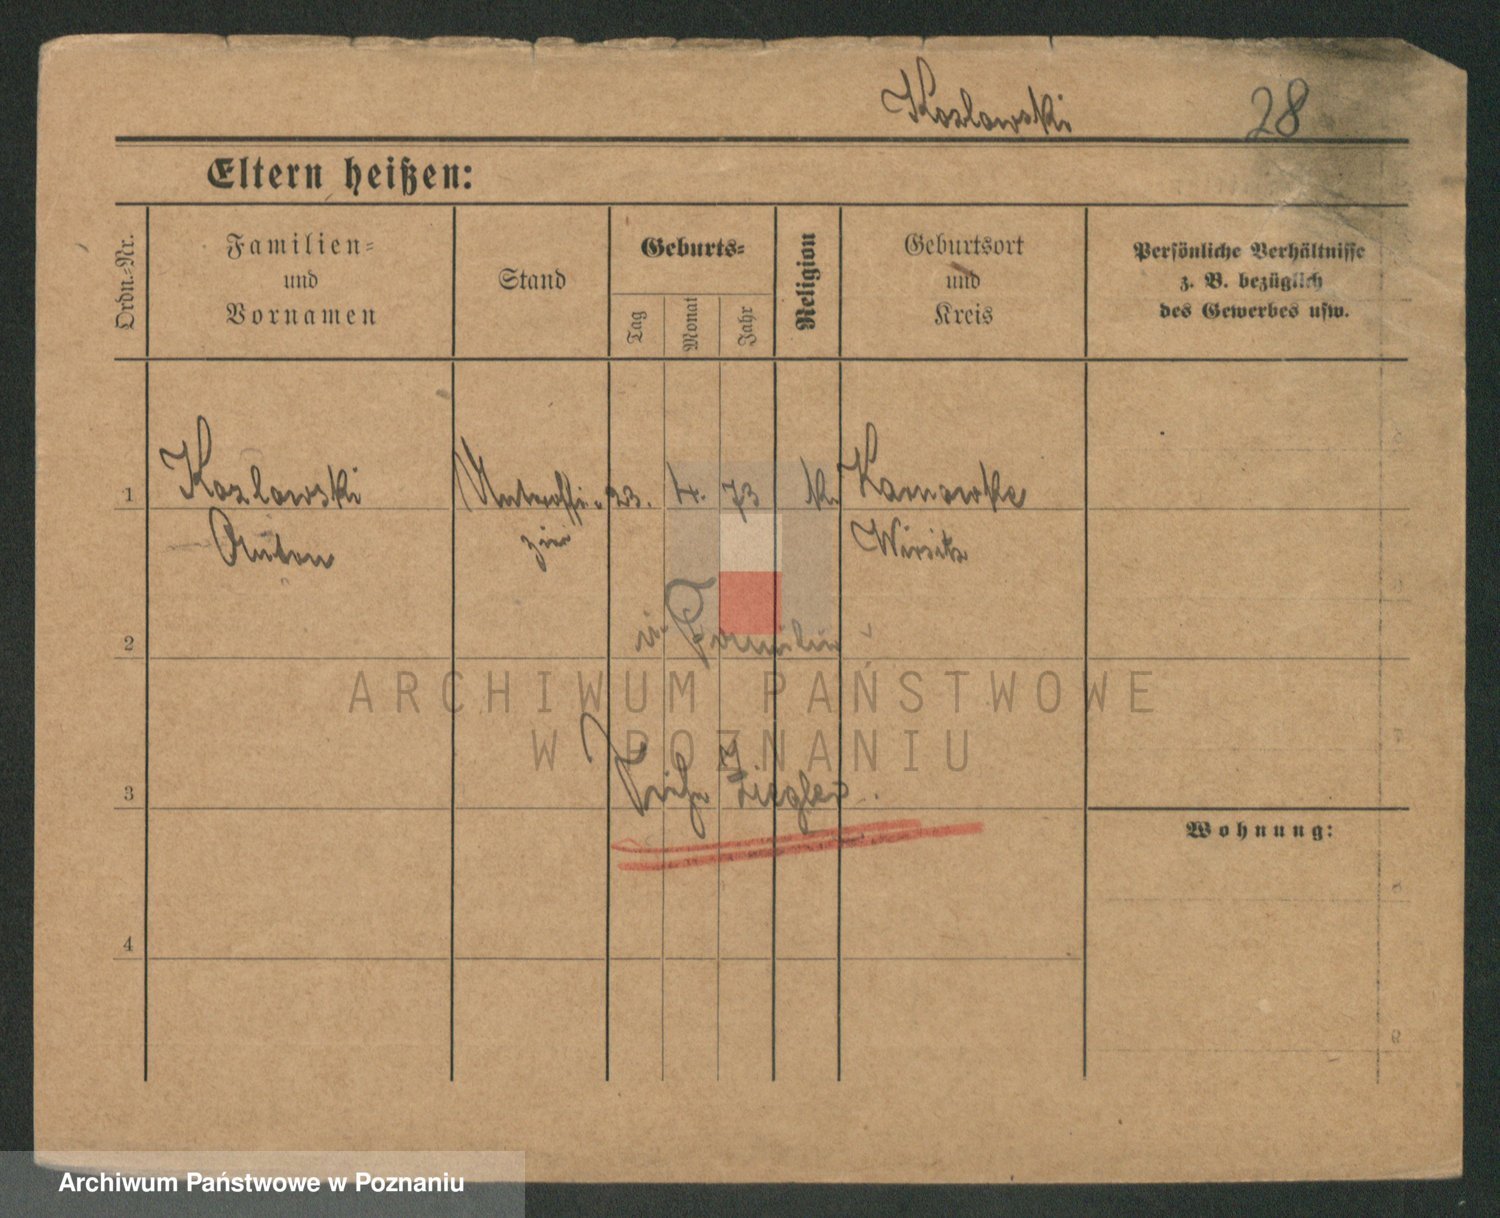 Kozlowski 28
Eltern heißen:
Ordn.-Nr.
Familien-
und
Vornamen
Stand
Geburts-
Tag
Monat
Jahr
Religion
Geburtsort
und
Kreis
Persönliche Verhältnisse
z. B. bezüglich
des Gewerbes usw.
1 Kozlowski Unteroffi- 23. 4. 73 k.
Anton zier Wirsitz
2 u. Familie
ARCHIWUM PAŃSTWOWE
W POZNANIU
3 Ziegler.
Wohnung:
4
Archiwum Państwowe w Poznaniu